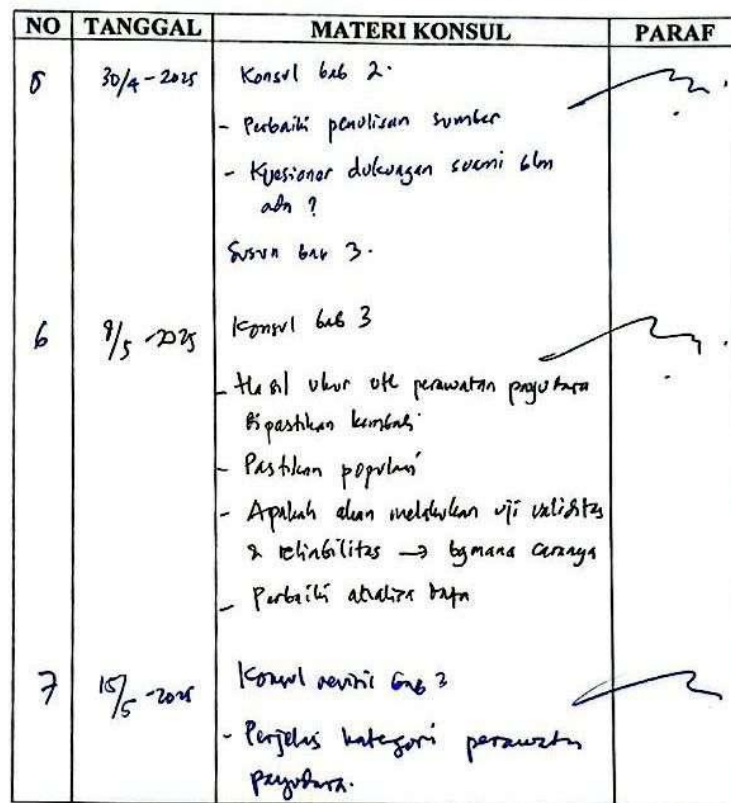 NO TANGGAL MATERI KONSUL PARAF
5 30/4-2025 Konsul bab 2.
- Perbaiki penulisan sumber
- Kuesioner dukungan suami blm
ada ?
Susun bab 3.
6 9/5-2025 Konsul bab 3
- Hasil ukur utk perawatan payudara
dipastikan kembali
- Pastikan populasi
- Apakah akan melakukan uji validitas
& reliabilitas → bgmana caranya
- Perbaiki analisa data
7 15/5-2025 Konsul revisi bab 3
- Perjelas kategori perawatan
payudara.